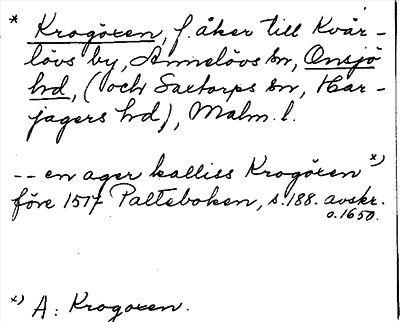 * Krogöxen, f. åker till Kvär-
lövs by, Annelövs sn, Onsjö
hd, (och Saxtorps sn, Har-
jagers hd), Malm. l.
-- en ager kalliss Krogöxen x)
före 1517 Palteboken, s. 188. avskr.
o. 1650.
x) A: Krogoxen.